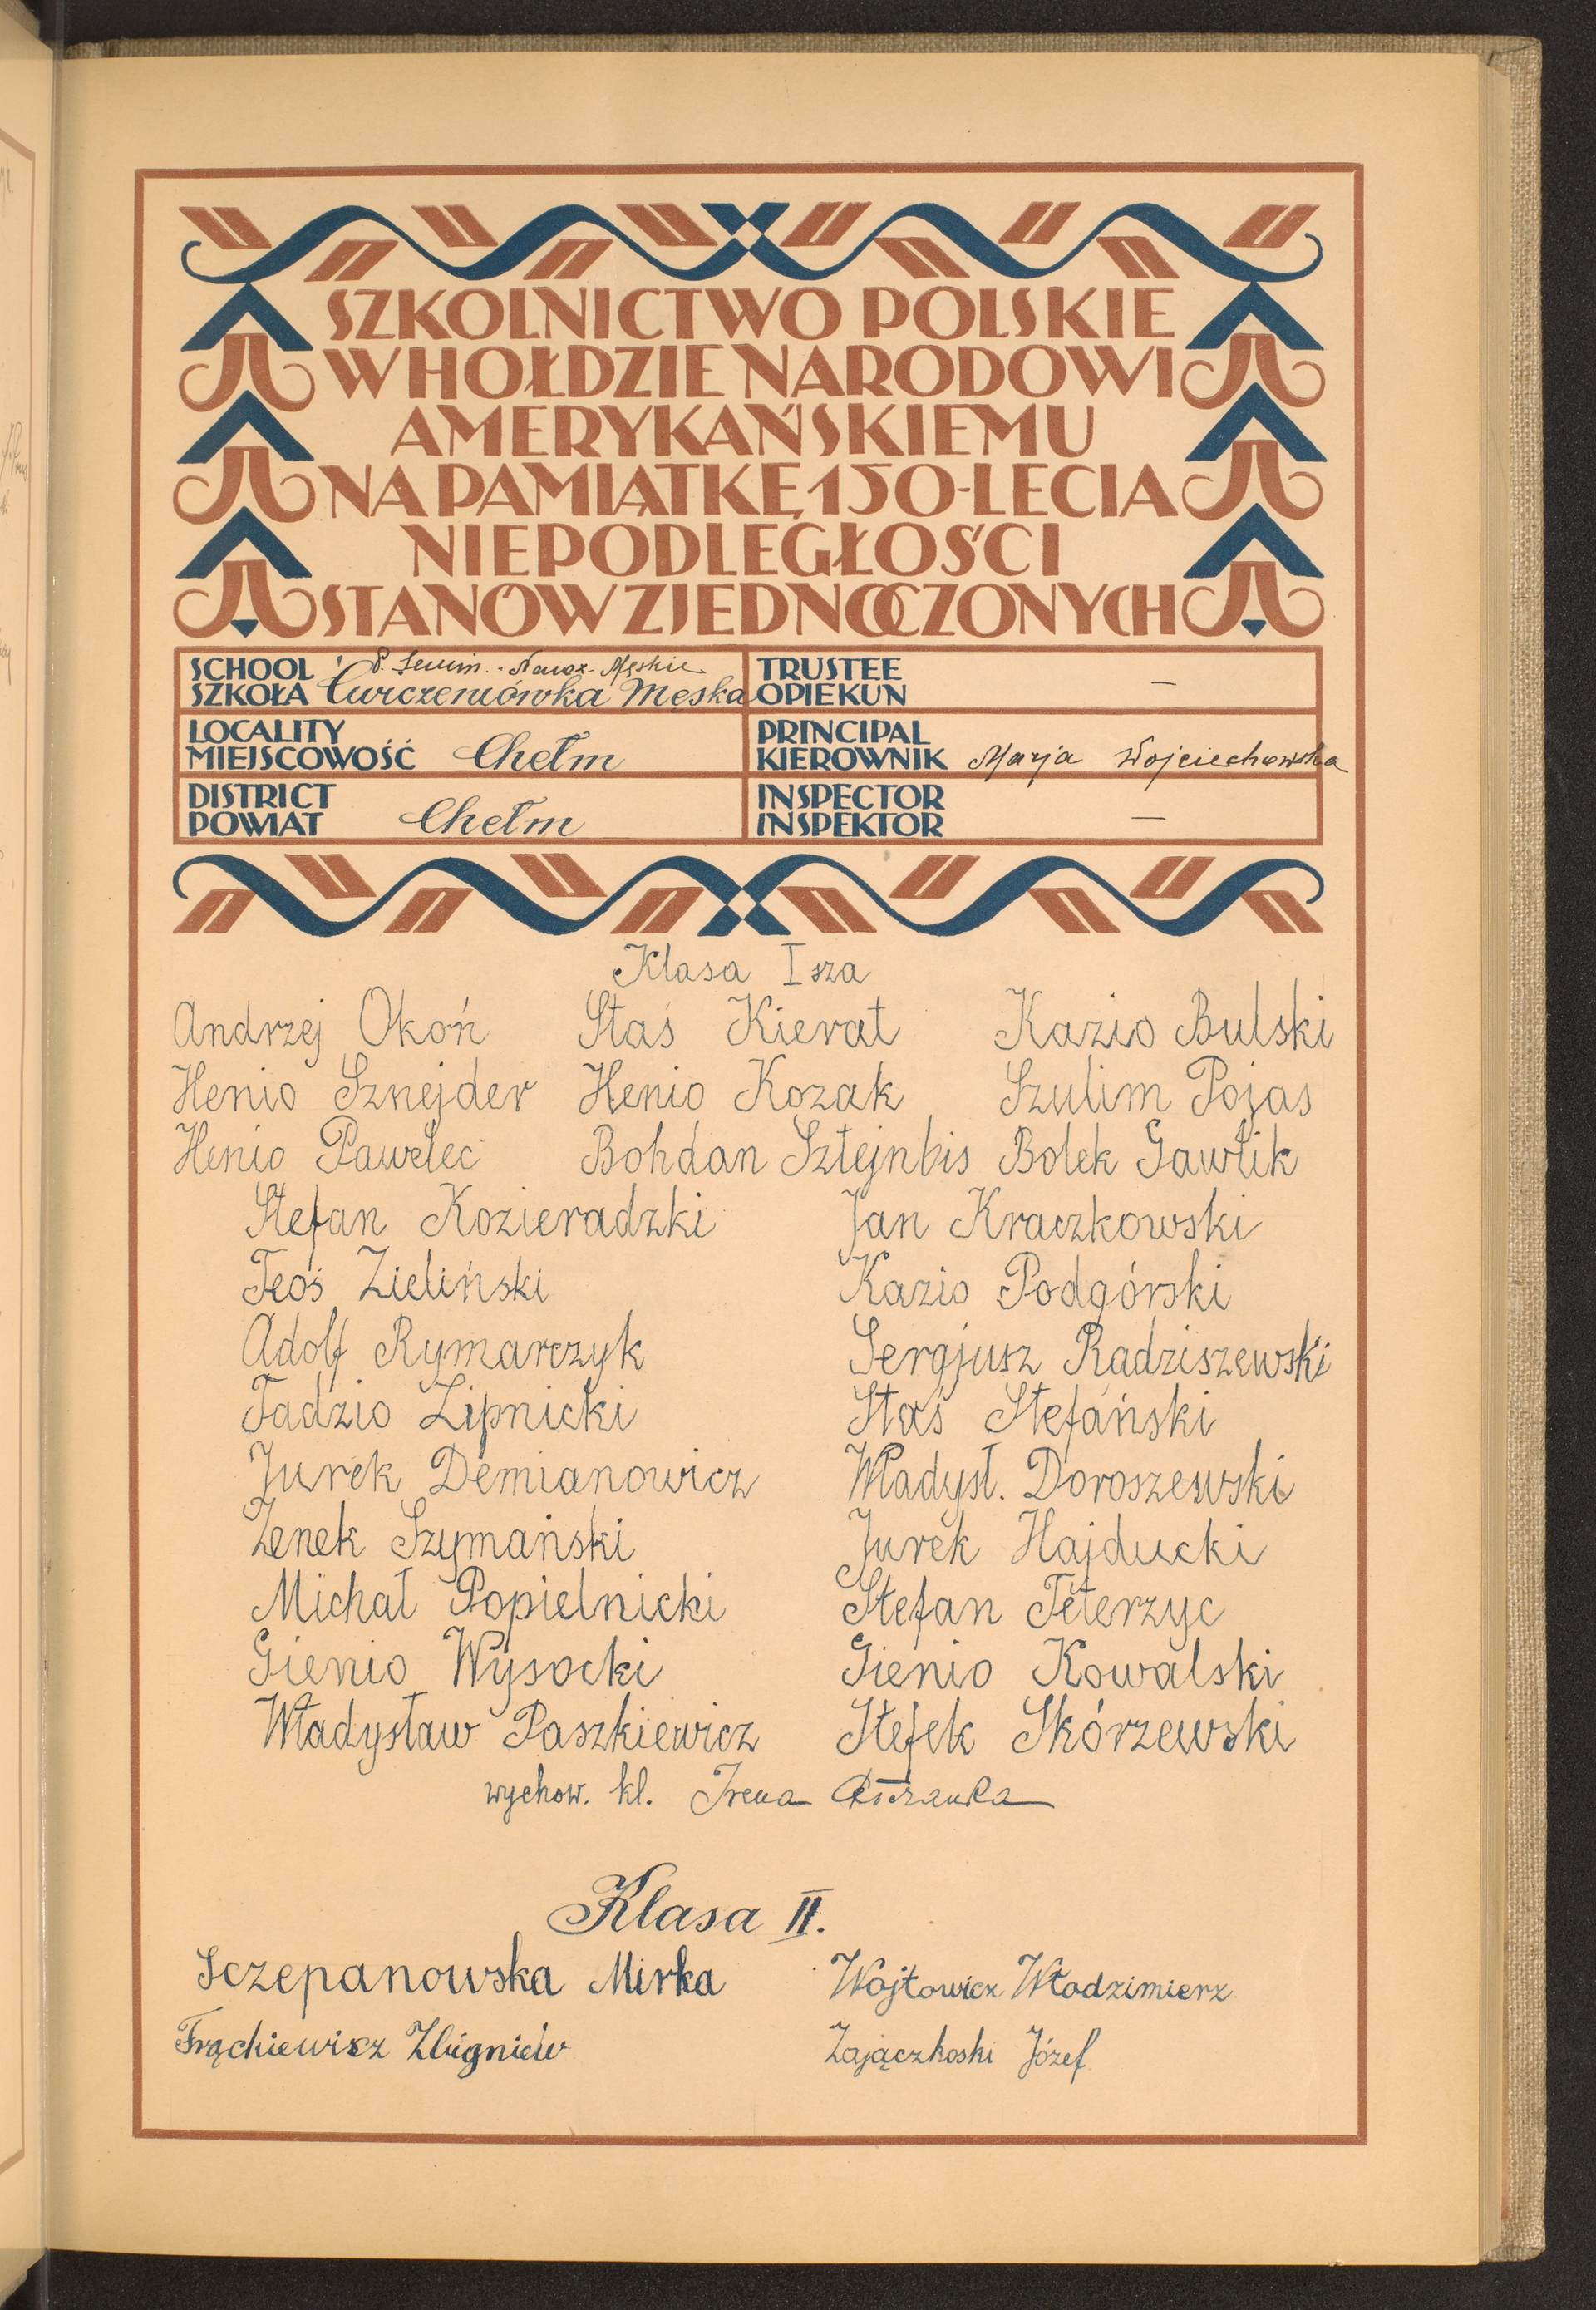 SZKOLNICTWO POLSKIE
W HOŁDZIE NARODOWI
AMERYKAŃSKIEMU
NA PAMIĄTKĘ 150-LECIA
NIEPODLEGŁOŚCI
STANÓW ZJEDNOCZONYCH
SCHOOL P. Semin. Naucz. Męskie
SZKOŁA Ćwiczeniówka Męska
TRUSTEE
OPIEKUN —
LOCALITY
MIEJSCOWOŚĆ Chełm
PRINCIPAL
KIEROWNIK Marja Wojciechowska
DISTRICT
POWIAT Chełm
INSPECTOR
INSPEKTOR —
Klasa I sza
Andrzej Okoń Staś Kierat Kazio Bulski
Henio Sznejder Henio Kozak Szulim Pojas
Henio Pawelec Bohdan Sztejnbis Bolek Gawlik
Stefan Kozieradzki Jan Kraczkowski
Feoś Zieliński Kazio Podgórski
Adolf Rymarczyk Sergjusz Radziszewski
Tadzio Lipnicki Staś Stefański
Jurek Demianowicz Władysł. Doroszewski
Zenek Szymański Jurek Hajducki
Michał Popielnicki Stefan Teterzyc
Gienio Wysocki Gienio Kowalski
Władysław Paszkiewicz Stefek Skórzewski
wychow. kl. Irena
Klasa II.
Sczepanowska Mirka Wójtowicz Włodzimierz
Frąckiewicz Zbigniew Zajączkoski Józef